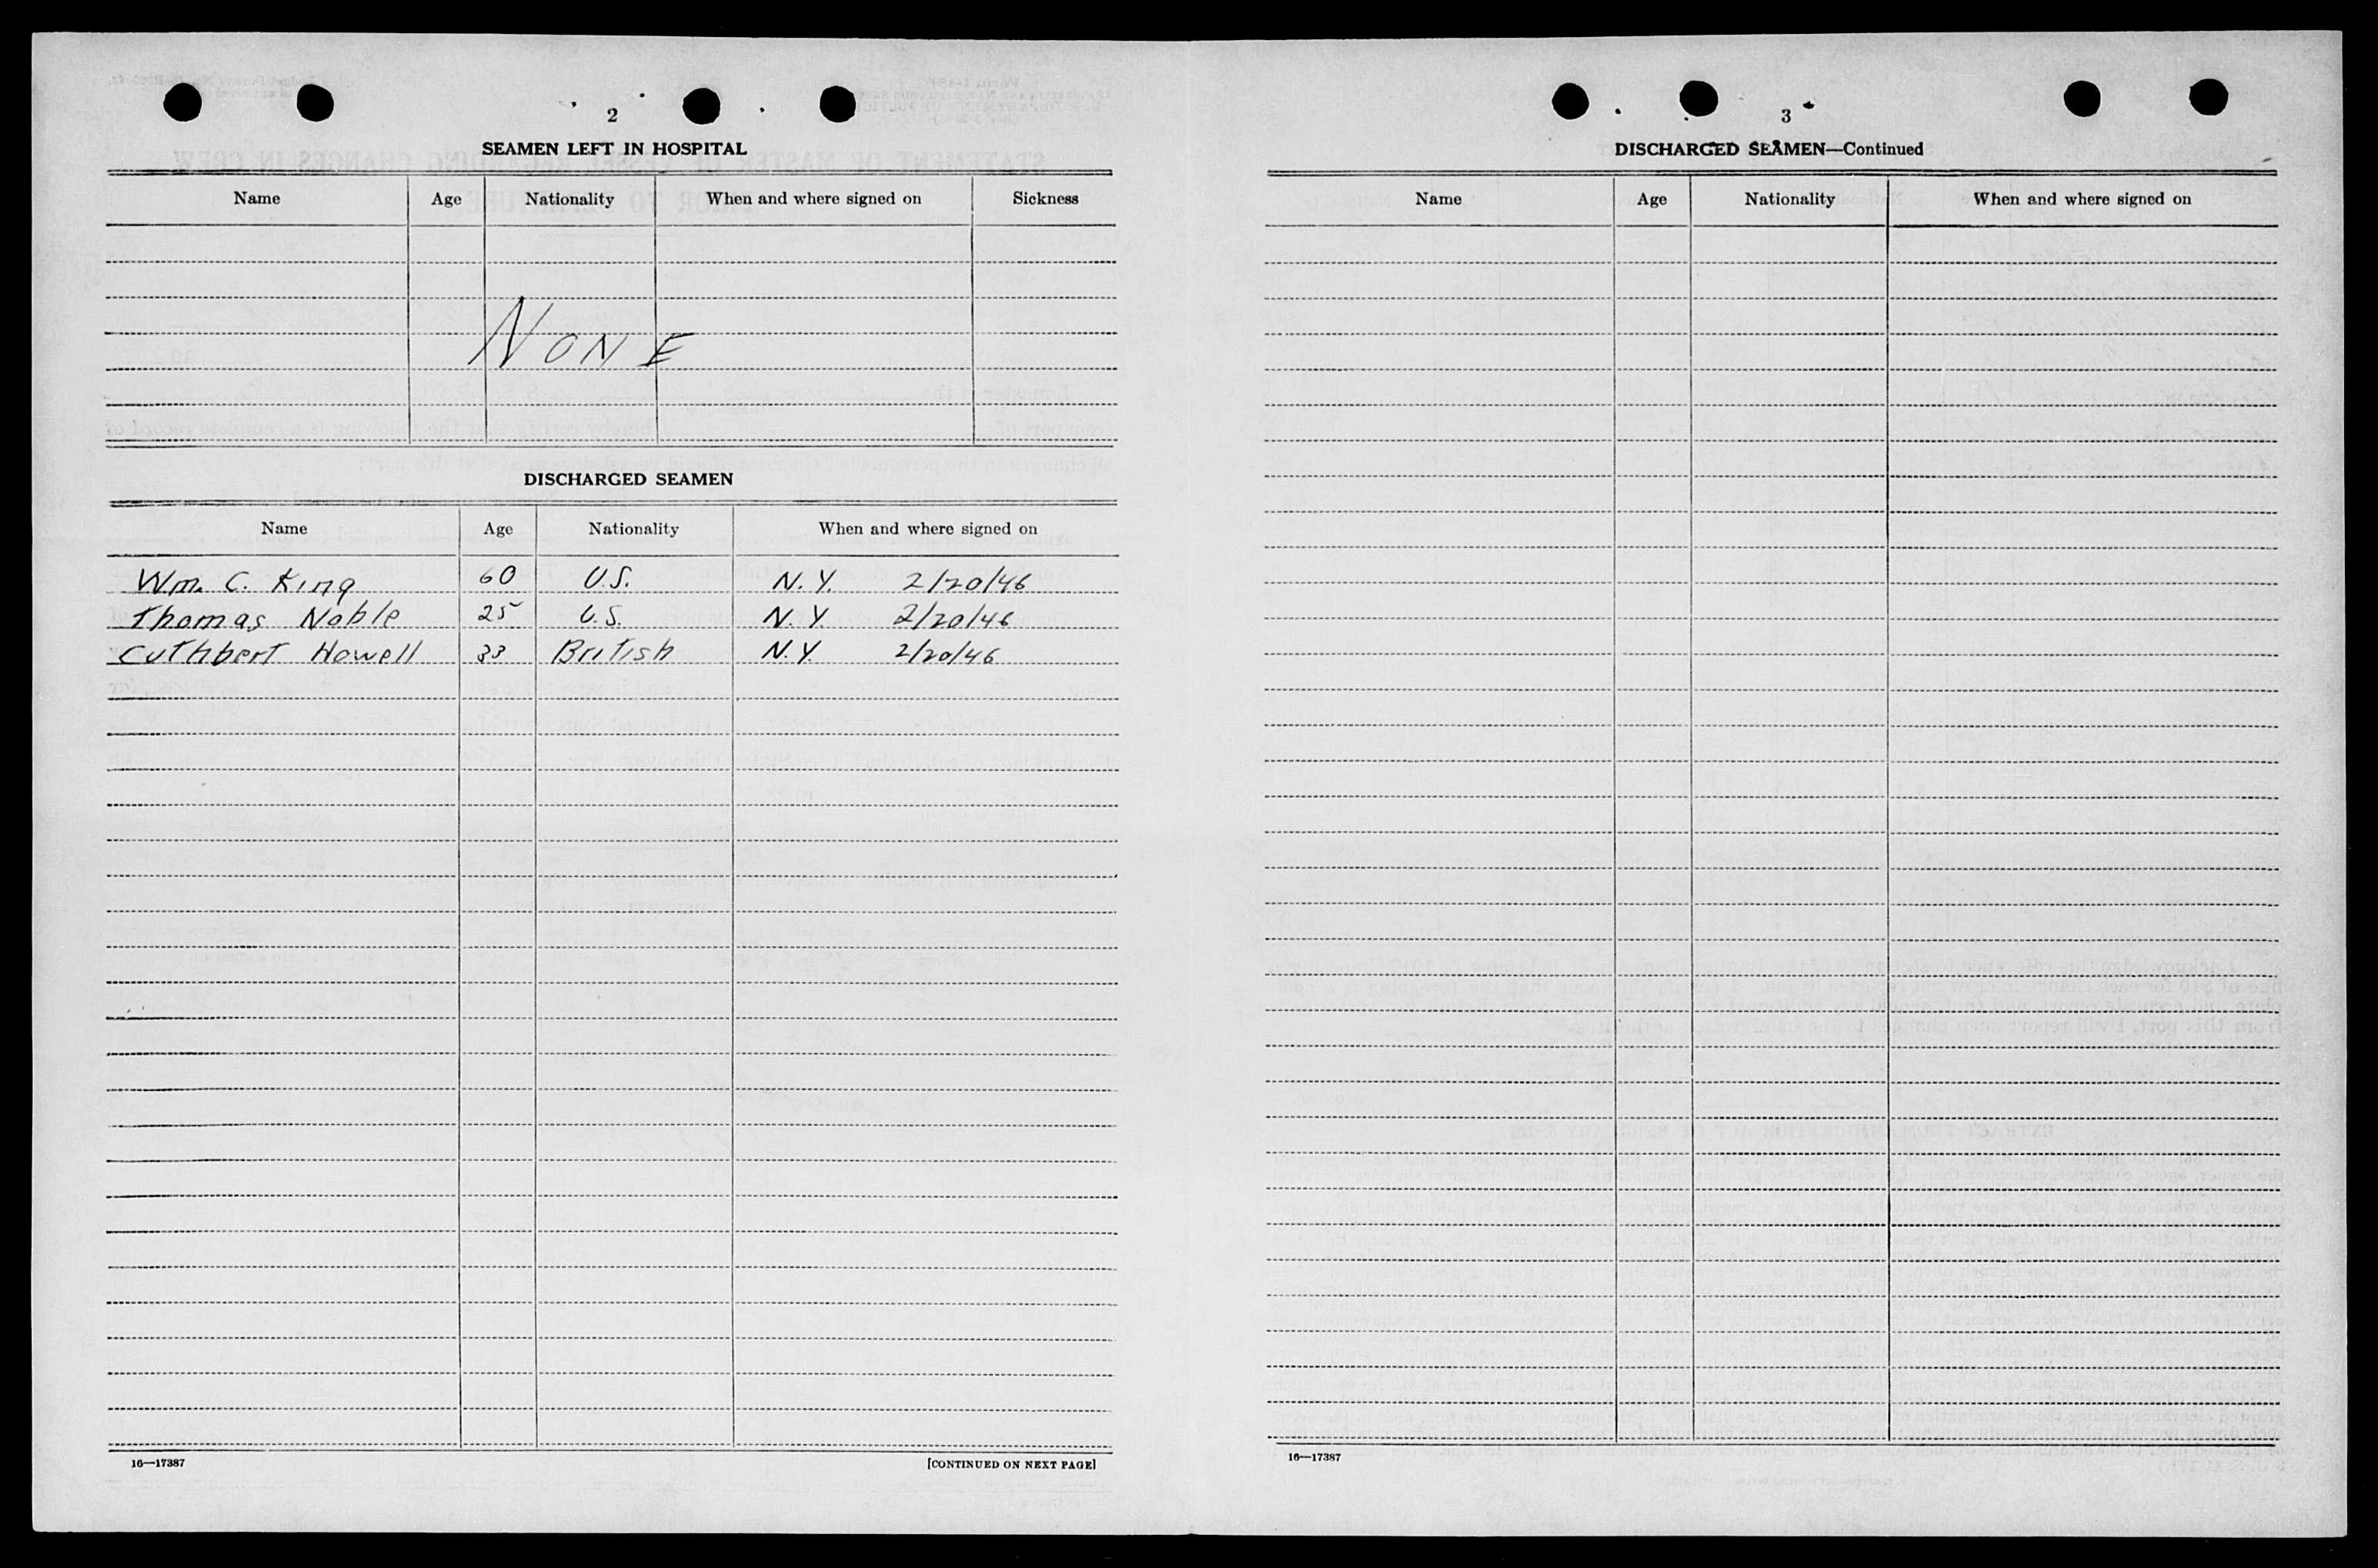 2
SEAMEN LEFT IN HOSPITAL
Name Age Nationality When and where signed on Sickness
NONE
DISCHARGED SEAMEN
Name Age Nationality When and where signed on
Wm. C. King 60 U.S. N.Y. 2/20/46
Thomas Noble 25 U.S. N.Y. 2/20/46
Cuthbert Howell 33 British N.Y. 2/20/46
16—17387 [CONTINUED ON NEXT PAGE]
3
DISCHARGED SEAMEN—Continued
Name Age Nationality When and where signed on
16—17387